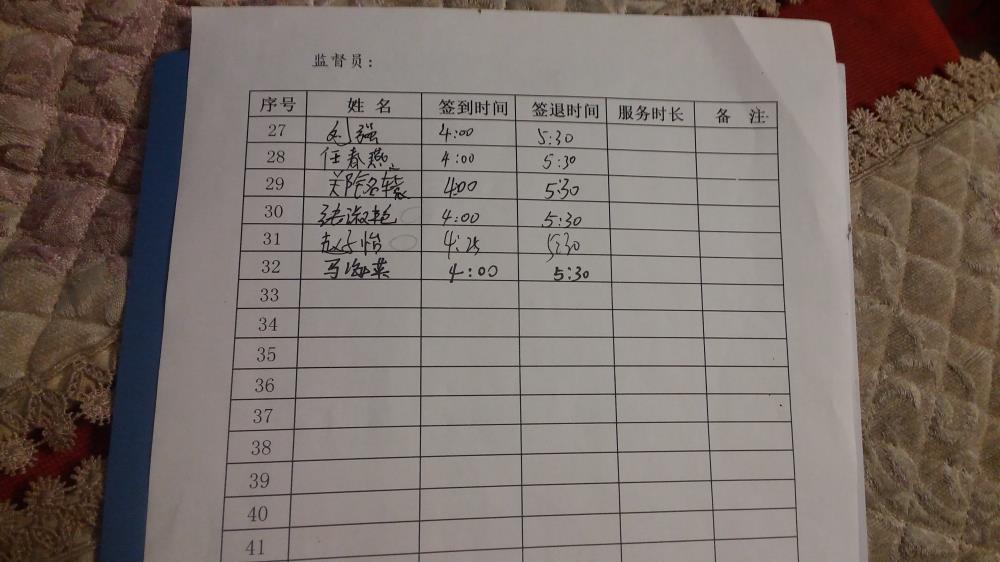 监督员：
序号 姓名 签到时间 签退时间 服务时长 备注
27 刘强 4:00 5:30
28 任春燕 4:00 5:30
29 4:00 5:30
30 张淑艳 4:00 5:30
31 赵子怡 4:25 5:30
32 马海英 4:00 5:30
33
34
35
36
37
38
39
40
41